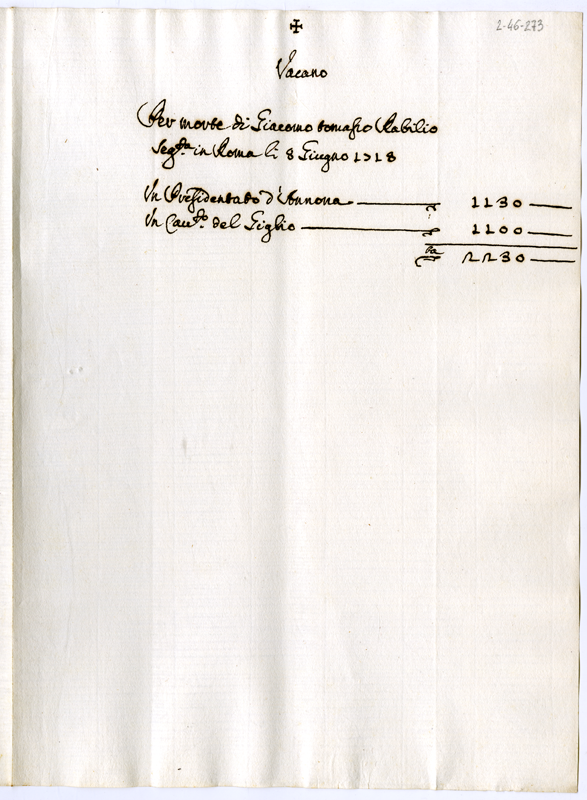 ✠
2-46-273
Vacano
Per morte di Giacomo tomaso Rabilio
Seg.ta in Roma li 8 Giugno 1718
In Presidentato d'Annona — 1130 —
In Cau.to del Giglio — 1100 —
2230 —